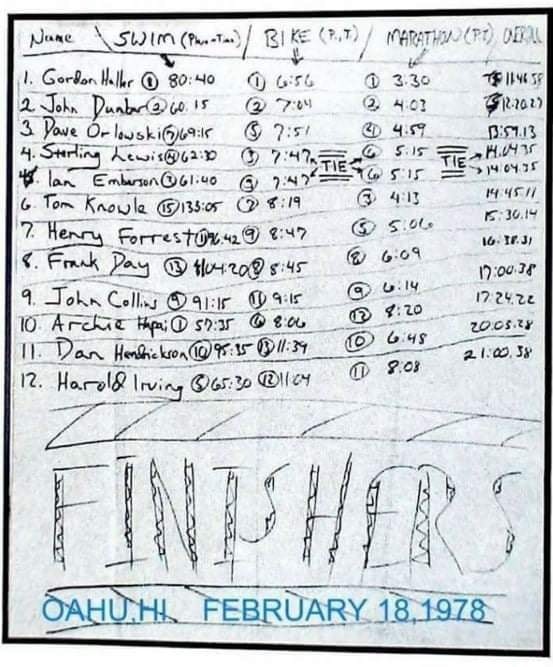 Name \ SWIM (Place-Time) / BIKE (P., T.) / MARATHON (P,T), OVERALL
1. Gordon Haller ⑧ 80:40 ① 6:56 ① 3:30 11:46:58
2. John Dunbar ② 60:15 ② 7:04 ② 4:03 12:20:27
3. Dave Orlowski ⑦ 69:15 ⑤ 7:51 ④ 4:59 13:59.13
4. Sterling Lewis ④ 62:30 ③ 7:47 TIE ⑥ 5:15 TIE 14.04.35
Ian Emberson ③ 61:40 ③ 7:47 ⑥ 5:15 14:04.35
6. Tom Knowle ⑮ 133:05 ⑦ 8:19 ③ 4:13 14:45:11
7. Henry Forrest ⑪ 96.42 ⑨ 8:47 ⑤ 5:06 15:30.14
8. Frank Day ⑬ 104:20 ⑧ 8:45 ⑧ 6:09 16:38.31
9. John Collins ⑨ 91:15 ⑪ 9:15 ⑨ 6:14 17:00.38
10. Archie Hapai ① 57:35 ⑥ 8:06 ⑬ 8:20 17:24.22
11. Dan Hendrickson ⑩ 95:35 ⑬ 11:39 ⑩ 6:48 20:03.28
12. Harold Irving ⑤ 65:30 ⑫ 11:04 ⑪ 8:08 21:00.38
FINISHERS
OAHU,HI FEBRUARY 18,1978